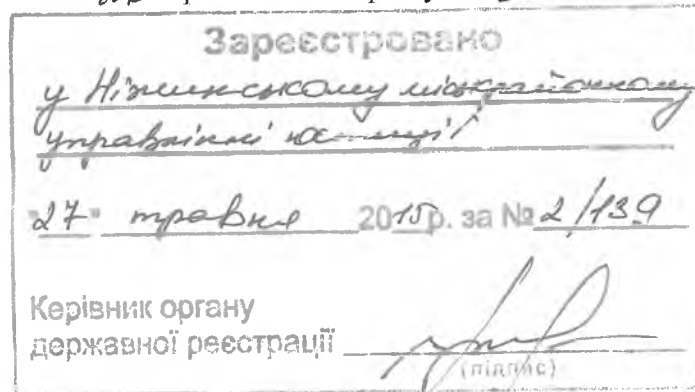 Зареєстровано
у Ніжинському міжрайонному
управлінні юстиції
"27" травня 2015р. за № 2/139
Керівник органу
державної реєстрації
(підпис)